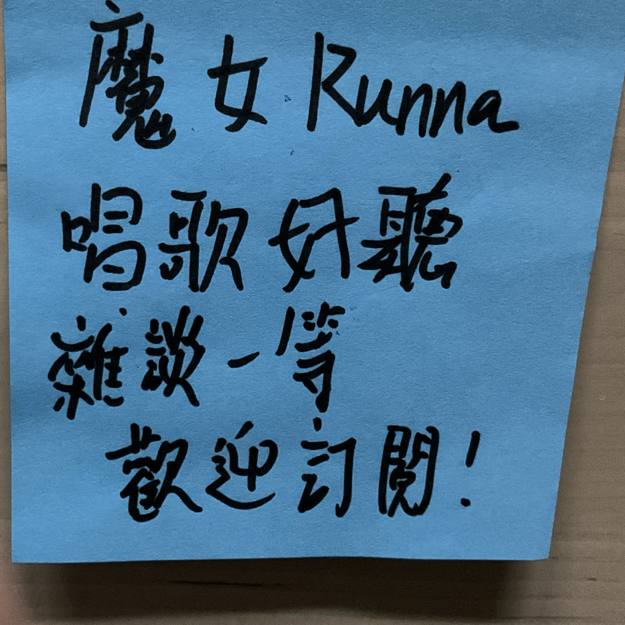 魔女 Runna
唱歌好聽
雜談一等
歡迎訂閱!